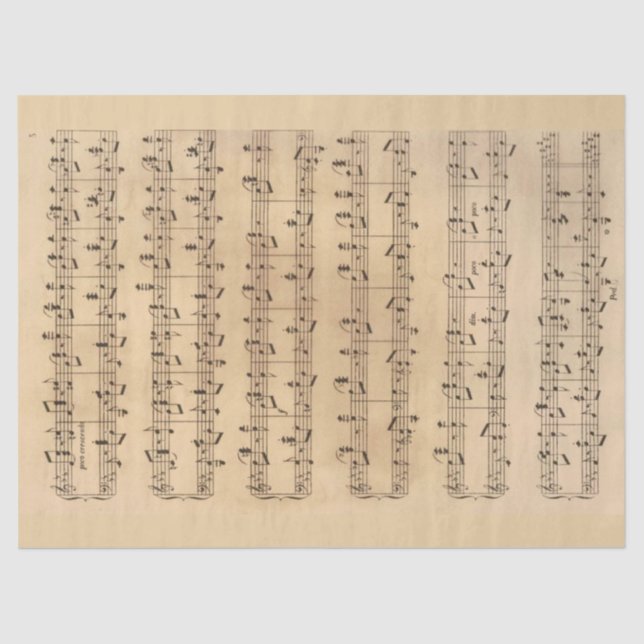 5
poco crescendo
dim. poco poco
Ped.